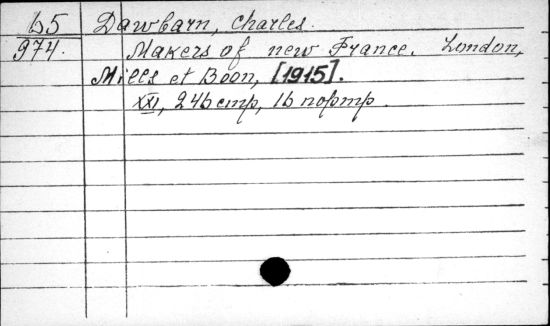 65 Dawbarn, Charles.
974. Makers of new France. London,
Mills et Boon, [1915].
XXI, 246 стр, 16 портр.